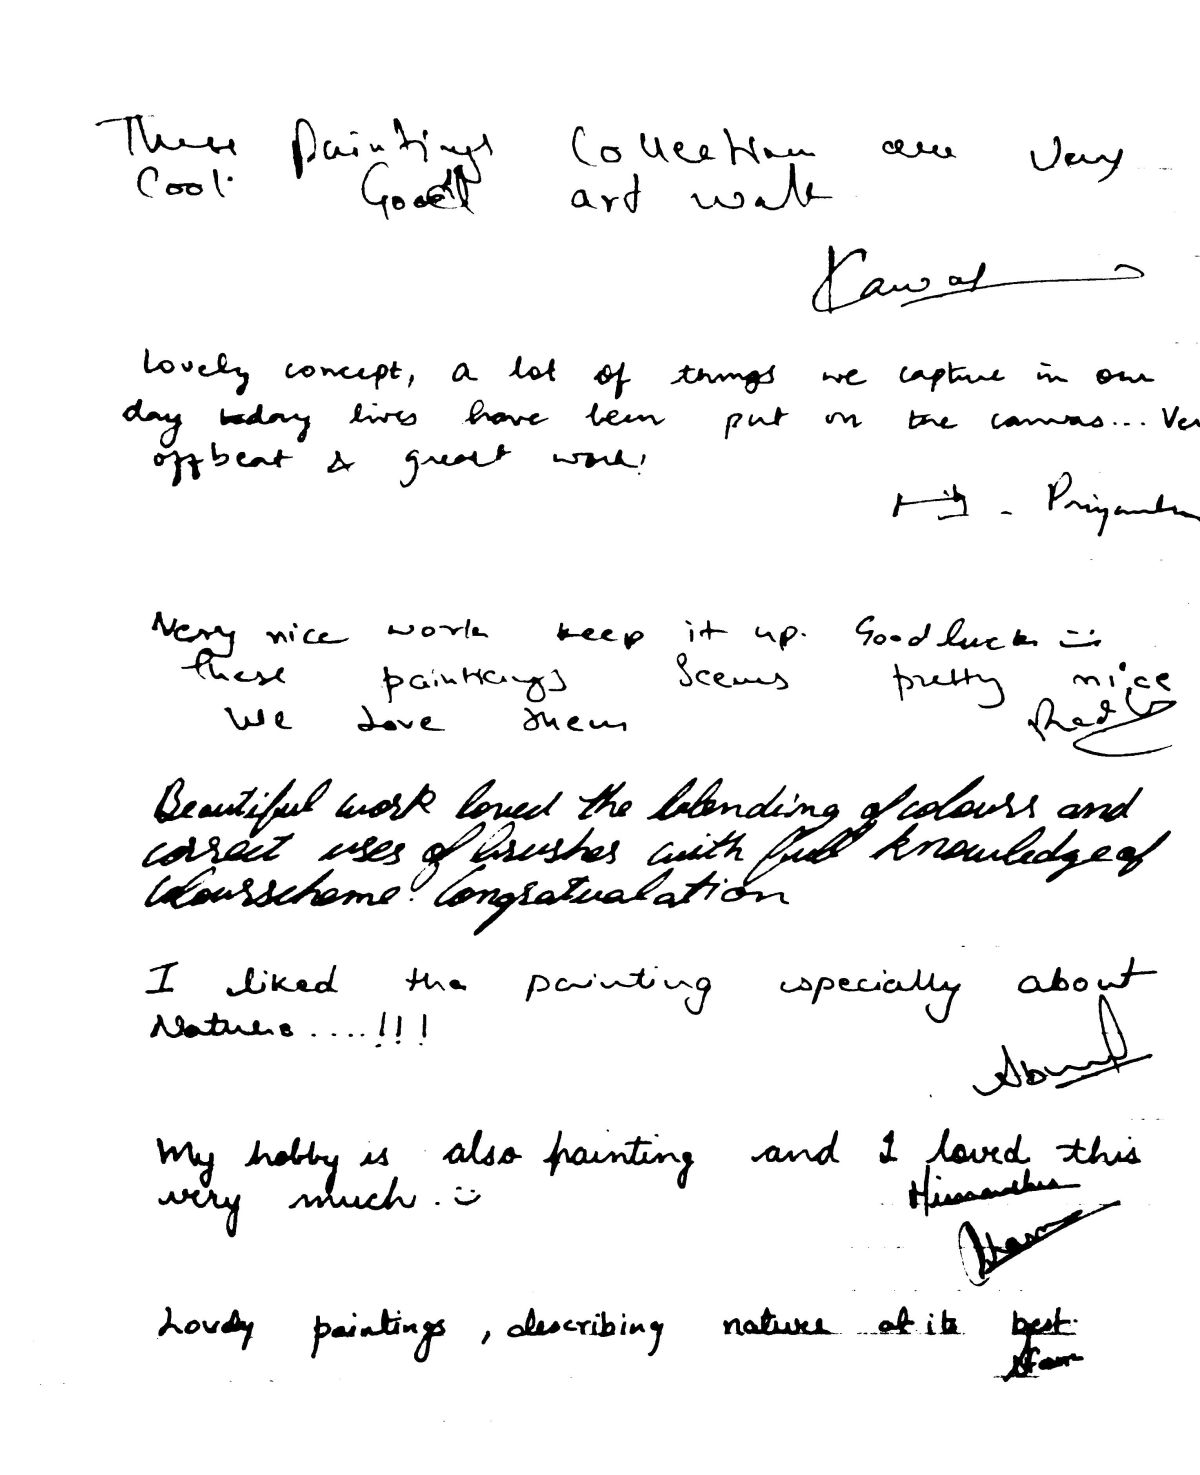 These Paintings Collection are Very
Cool. Good art walk
Kawal
Lovely concept, a lot of things we capture in our
day today lives have been put on the canvas... Ver
offbeat & great work!
- Priyanka
Very nice work keep it up. Good luck
These paintings seems pretty nice
We Love them
Beautiful work loved the blending of colours and
correct uses of brushes with full knowledge of
colourscheme. Congratualation
I liked the painting especially about
Nature....!!!
My hobby is also painting and I loved this
very much.
Himanshu
Lovely paintings, describing nature at its best.